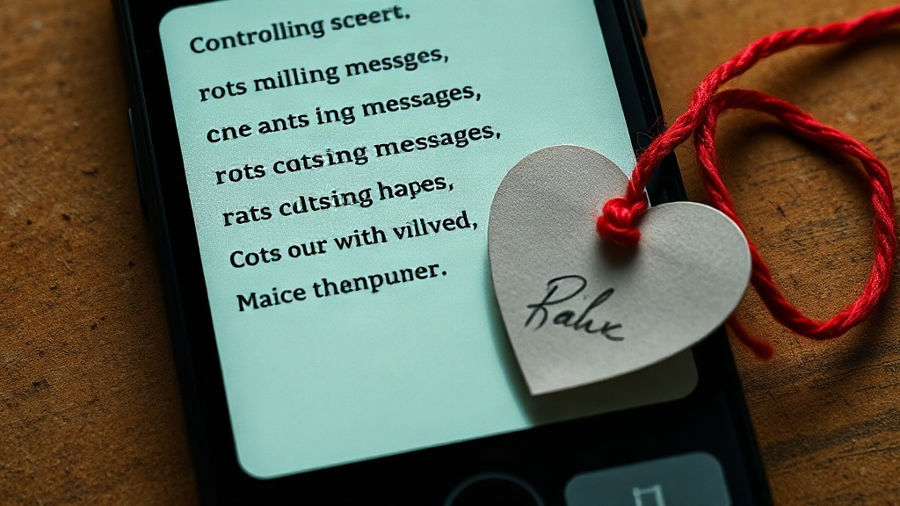 Controlling sceert.
rots milling messges,
cne ants ing messages,
rots cotsing messages,
rats cdtsing hapes,
Cots our with villved,
Maice thenpuner.